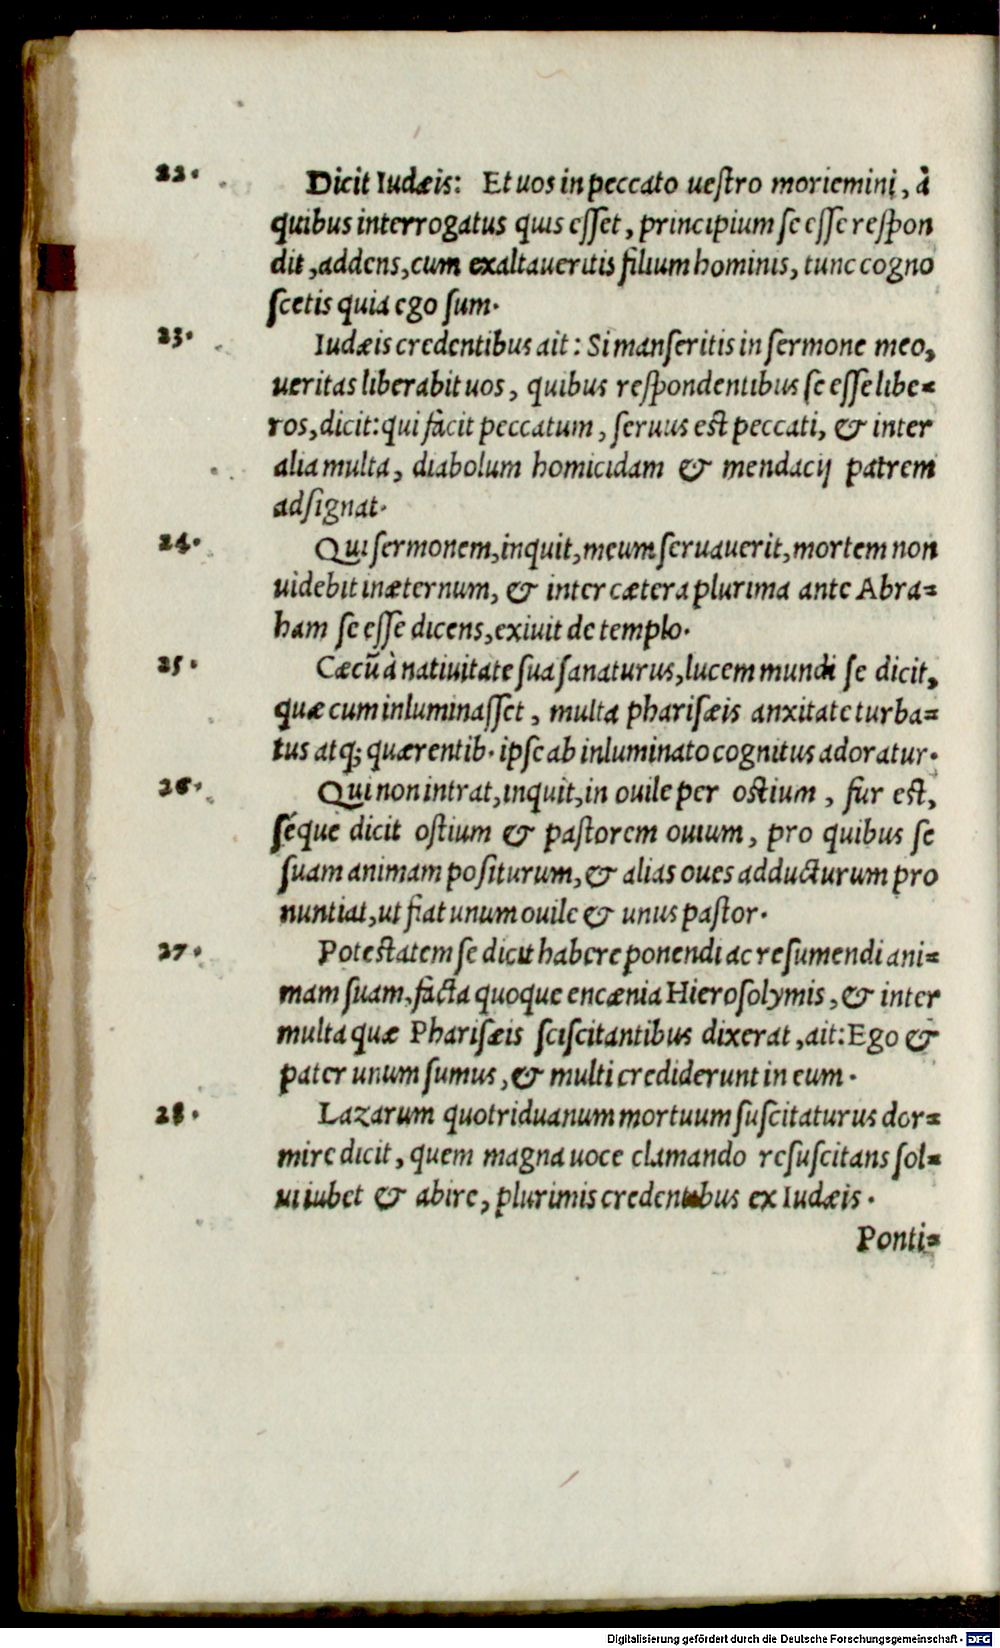 22. Dicit Iudæis: Et uos in peccato ueſtro moriemini, à
quibus interrogatus quis eſſet, principium ſe eſſe reſpon
dit, addens, cum exaltaueritis filium hominis, tunc cogno
ſcetis quia ego ſum.
23. Iudæis credentibus ait: Si manſeritis in ſermone meo,
ueritas liberabit uos, quibus reſpondentibus ſe eſſe libe=
ros, dicit: qui facit peccatum, ſeruus est peccati, & inter
alia multa, diabolum homicidam & mendacij patrem
adſignat.
24. Qui ſermonem, inquit, meum ſeruauerit, mortem non
uidebit in æternum, & inter cætera plurima ante Abra=
ham ſe eſſe dicens, exiuit de templo.
25. Cæcũ à natiuitate ſua ſanaturus, lucem mundi ſe dicit,
quæ cum inluminaſſet, multa phariſæis anxitate turba=
tus atq; quærentib. ipſe ab inluminato cognitus adoratur.
26. Qui non intrat, inquit, in ouile per ostium, fur est,
ſéque dicit oſtium & paſtorem ouium, pro quibus ſe
ſuam animam poſiturum, & alias oues adducturum pro
nuntiat, ut fiat unum ouile & unus paſtor.
27. Potestatem ſe dicit habere ponendi ac reſumendi ani=
mam ſuam, facta quoque encænia Hieroſolymis, & inter
multa quæ Phariſæis ſciſcitantibus dixerat, ait: Ego &
pater unum ſumus, & multi crediderunt in eum.
28. Lazarum quotriduanum mortuum ſuſcitaturus dor=
mire dicit, quem magna uoce clamando reſuſcitans ſol=
ui iubet & abire, plurimis credentibus ex Iudæis.
Ponti=
Digitalisierung gefördert durch die Deutsche Forschungsgemeinschaft - DFG